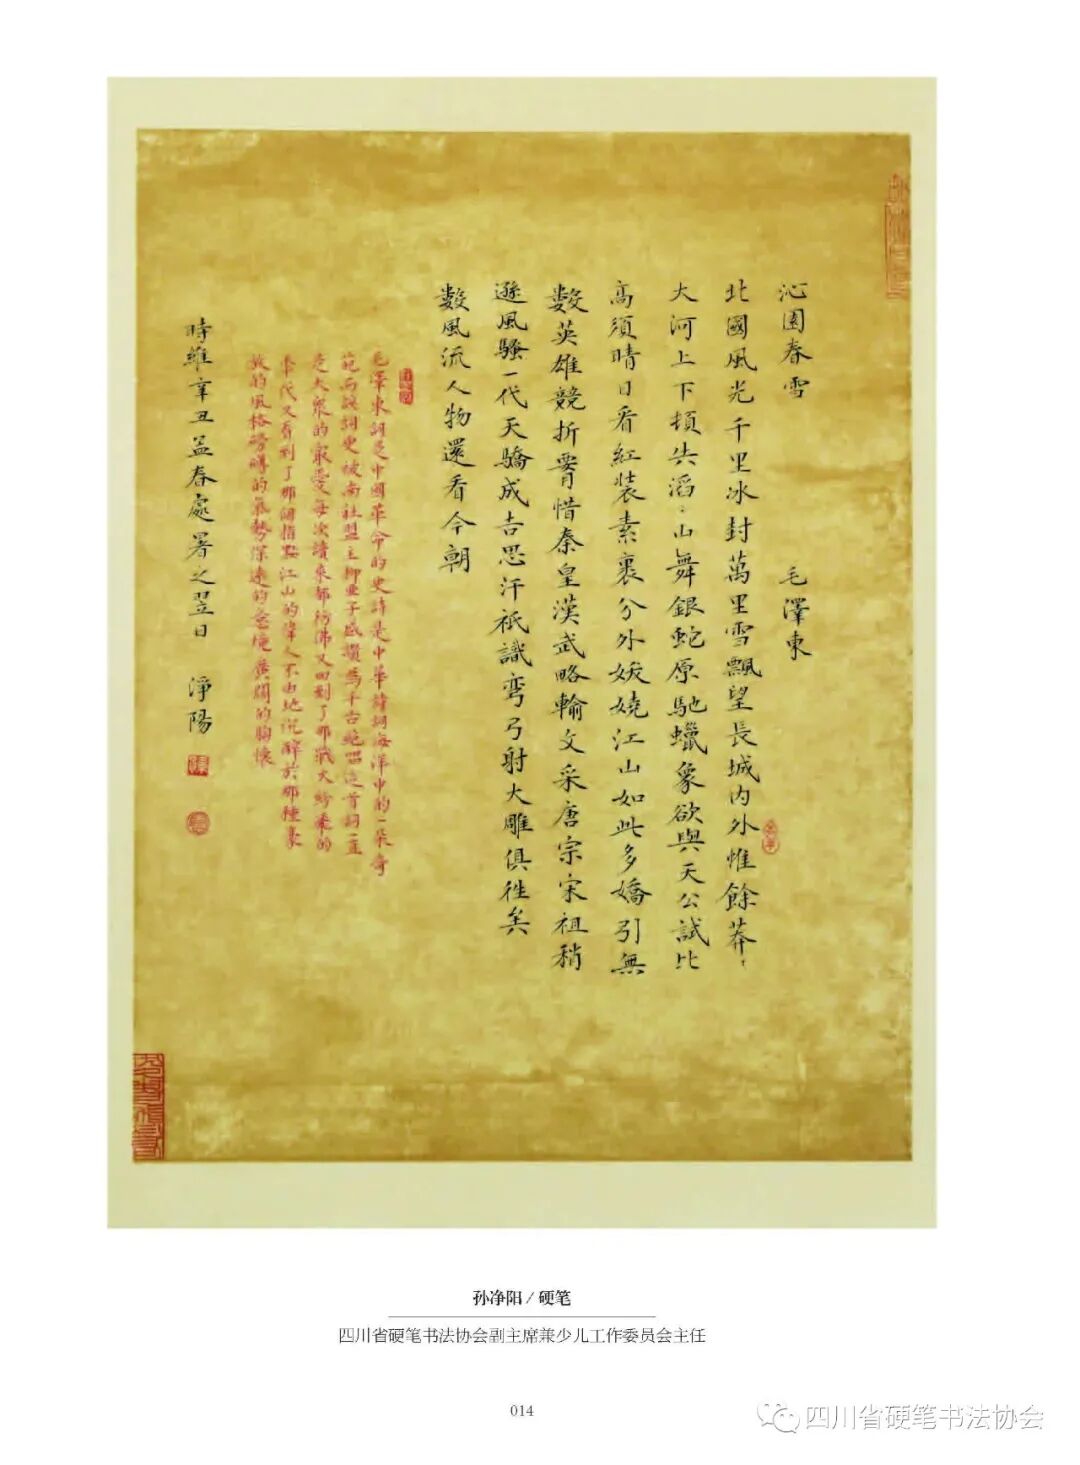 沁園春雪　毛澤東
北國風光千里冰封萬里雪飄望長城内外惟餘莽〻
大河上下頓失滔〻山舞銀蛇原馳蠟象欲與天公試比
高須晴日看紅裝素裹分外妖嬈江山如此多嬌引無
數英雄競折腰惜秦皇漢武略輸文采唐宗宋祖稍
遜風騷一代天驕成吉思汗祇識彎弓射大雕俱往矣
數風流人物還看今朝
毛澤東詞是中國革命的史詩是中華詩詞海洋中的一朵奇
葩而該詞更被南社盟主柳亞子感讚為千古絶唱這首詞一直
是大衆的最愛每次讀來都彷彿又回到了那戰火紛飛的
年代又看到了那個指點江山的偉人不由地沉醉於那種豪
放的風格磅礴的氣勢深遠的意境廣闊的胸懷
時維辛丑孟春處暑之翌日　淨陽
孙净阳 / 硬笔
四川省硬笔书法协会副主席兼少儿工作委员会主任
014
四川省硬笔书法协会